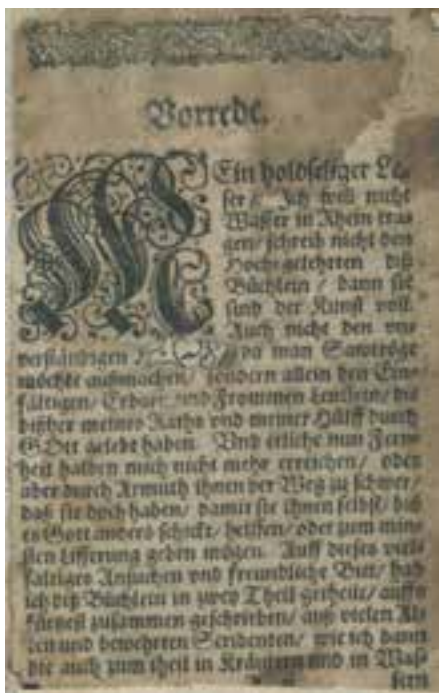 Vorrede.
MEin holdseliger Le-
ser / Ich will nicht
Wasser in Rhein tra-
gen / schreib nicht den
Hochgelehrten diß
Büchlein / dann sie
sind der Kunst voll.
Auch nicht den vn-
verständigen da man Sawtröge
möchte außmachen / sondern allein den Ein-
fältigen / Erbarn vnd Frommen Leutlein / die
bißher meines Raths vnd meiner Hülff durch
GOtt gelebt haben. Vnd etliche nun Fern-
heit halben mich nicht mehr erreichen / oder
aber durch Armuth ihnen der Weg zu schwer /
daß sie doch haben / damit sie ihnen selbst / biß
es Gott anders schickt / helffen / oder zum min-
sten Lifferung geben mögen. Auff dieses viel-
faltiges Ansuchen vnd freundliche Bitt / hab
ich diß Büchlein in zwey Theil getheilt / auffs
kürtzest zusammen geschrieben / auß vielen Al-
ten vnd bewehrten Scribenten / wie ich dann
die auch zum theil in Kräutern vnd in Was-
sern